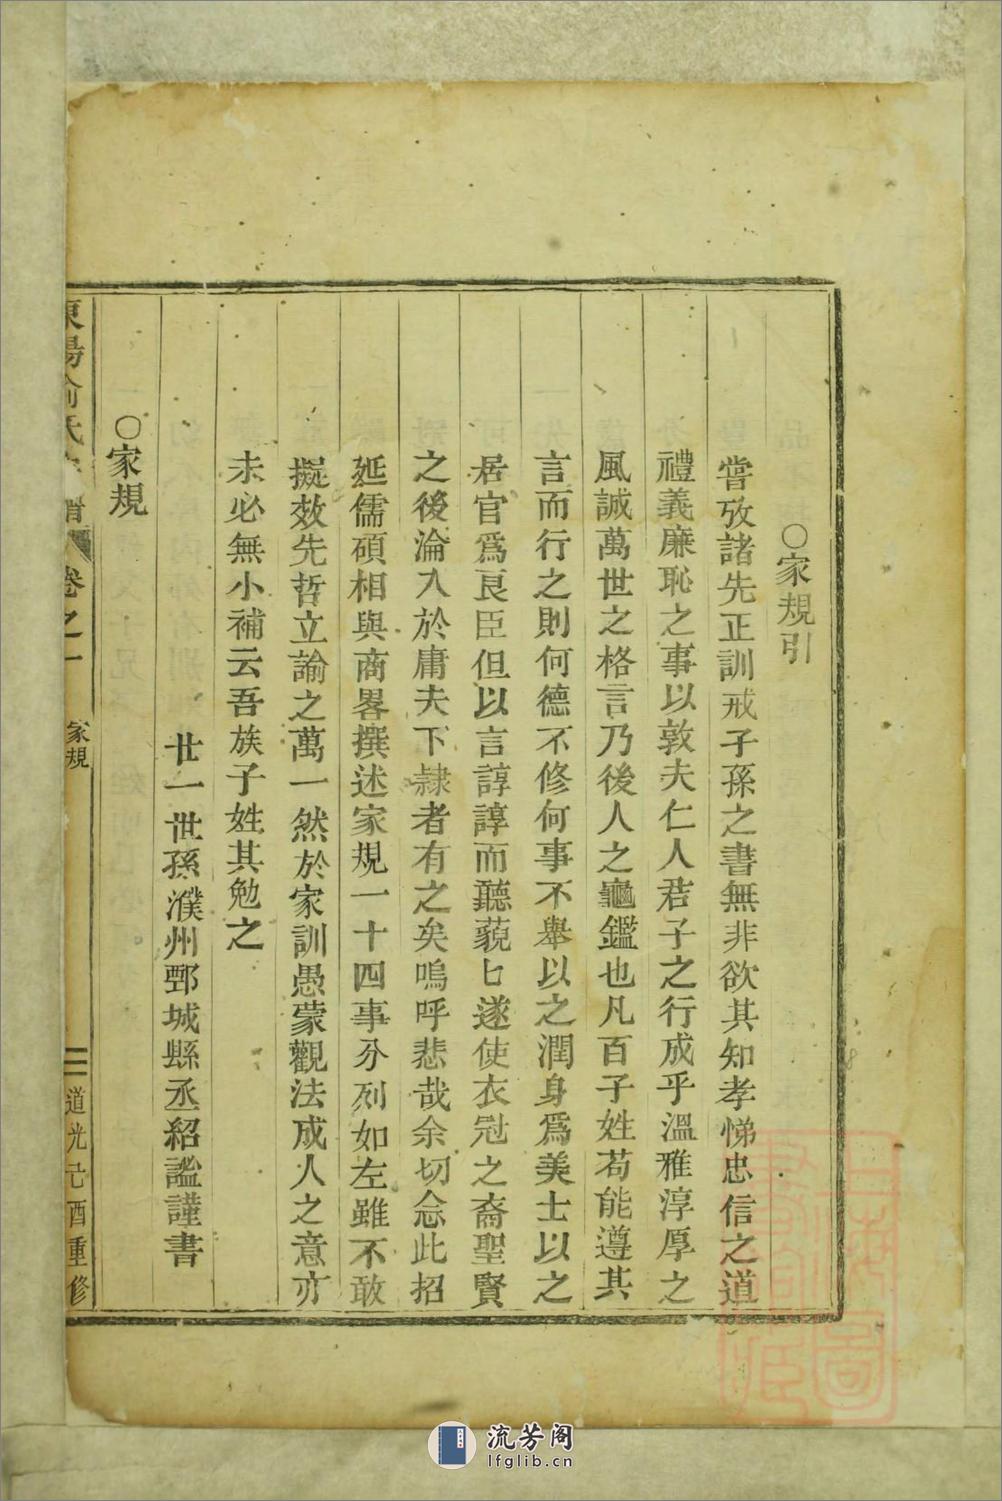 ○家規引
嘗攷諸先正訓戒子孫之書無非欲其知孝悌忠信之道
禮義廉恥之事以敦夫仁人君子之行成乎溫雅淳厚之
風誠萬世之格言乃後人之龜鑑也凡百子姓苟能遵其
言而行之則何德不修何事不舉以之潤身爲美士以之
居官爲良臣但以言諄諄而聽藐匕遂使衣冠之裔聖賢
之後淪入於庸夫下隷者有之矣嗚呼悲哉余切念此招
延儒碩相與商畧撰述家規一十四事分列如左雖不敢
擬效先哲立諭之萬一然於家訓愚蒙觀法成人之意亦
未必無小補云吾族子姓其勉之
廿一世孫濮州鄄城縣丞紹謐謹書
○家規
東陽俞氏 卷之一 家規 二 道光己酉重修
流芳阁
lfglib.cn